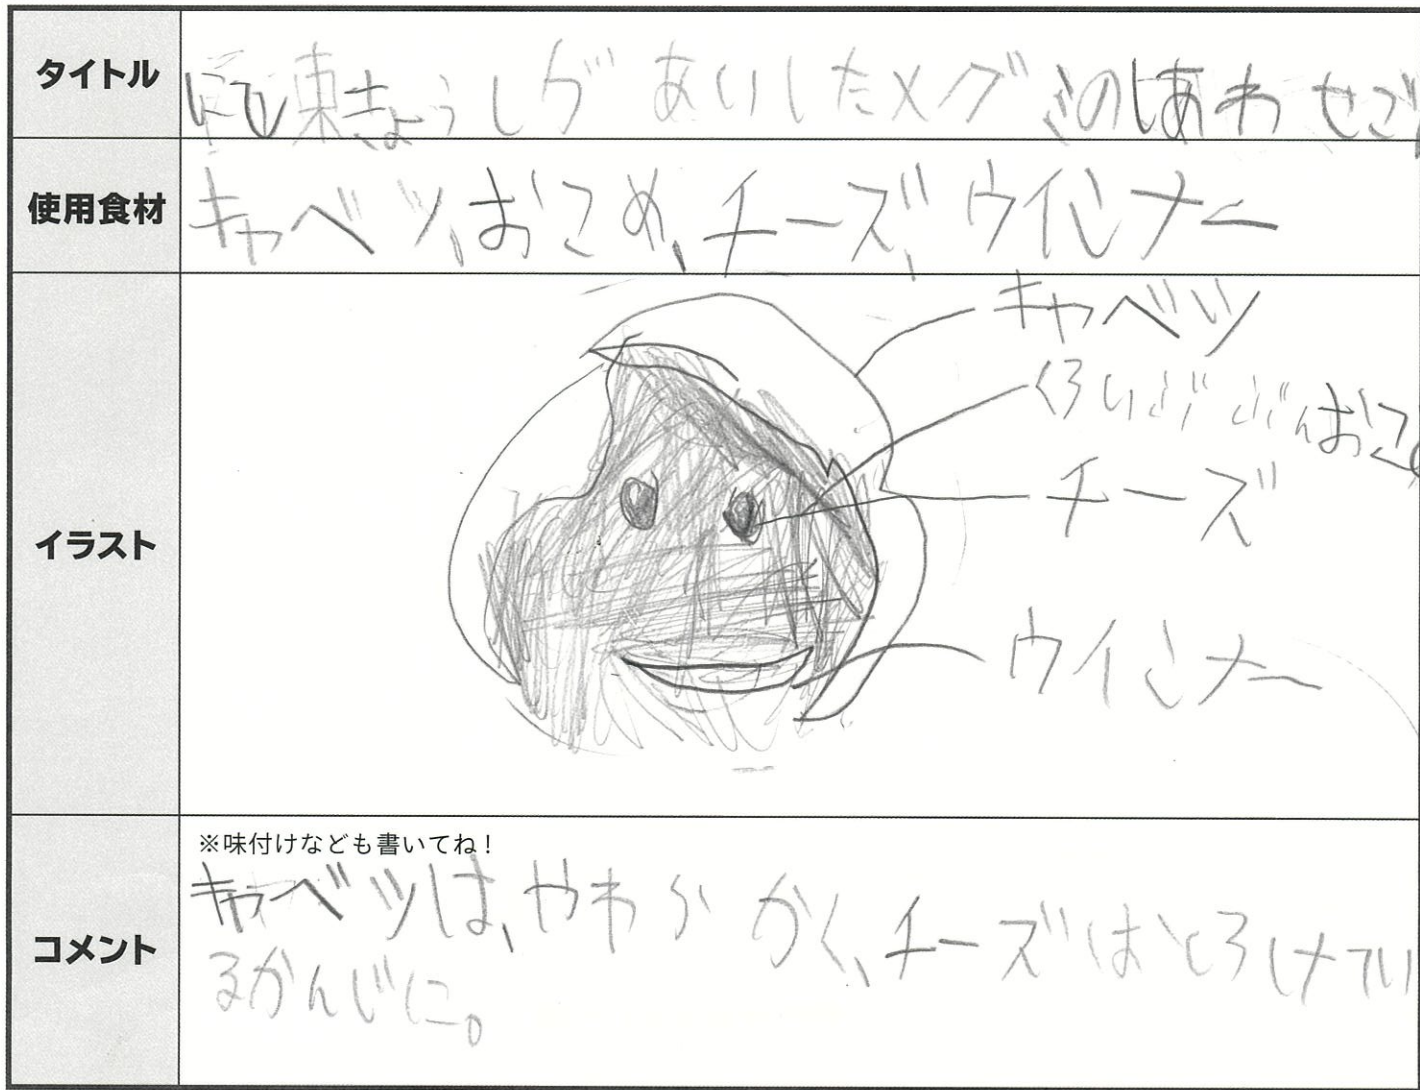 タイトル
にし東きょうしが あいしたメグミのしあわせご
使用食材
キャベツ、おこめ、チーズ、ウインナー
イラスト
キャベツ
くろいぶぶんおこめ
チーズ
ウインナー
コメント
※味付けなども書いてね！
キャベツは、やわらかく、チーズはとろけてい
るかんじに。